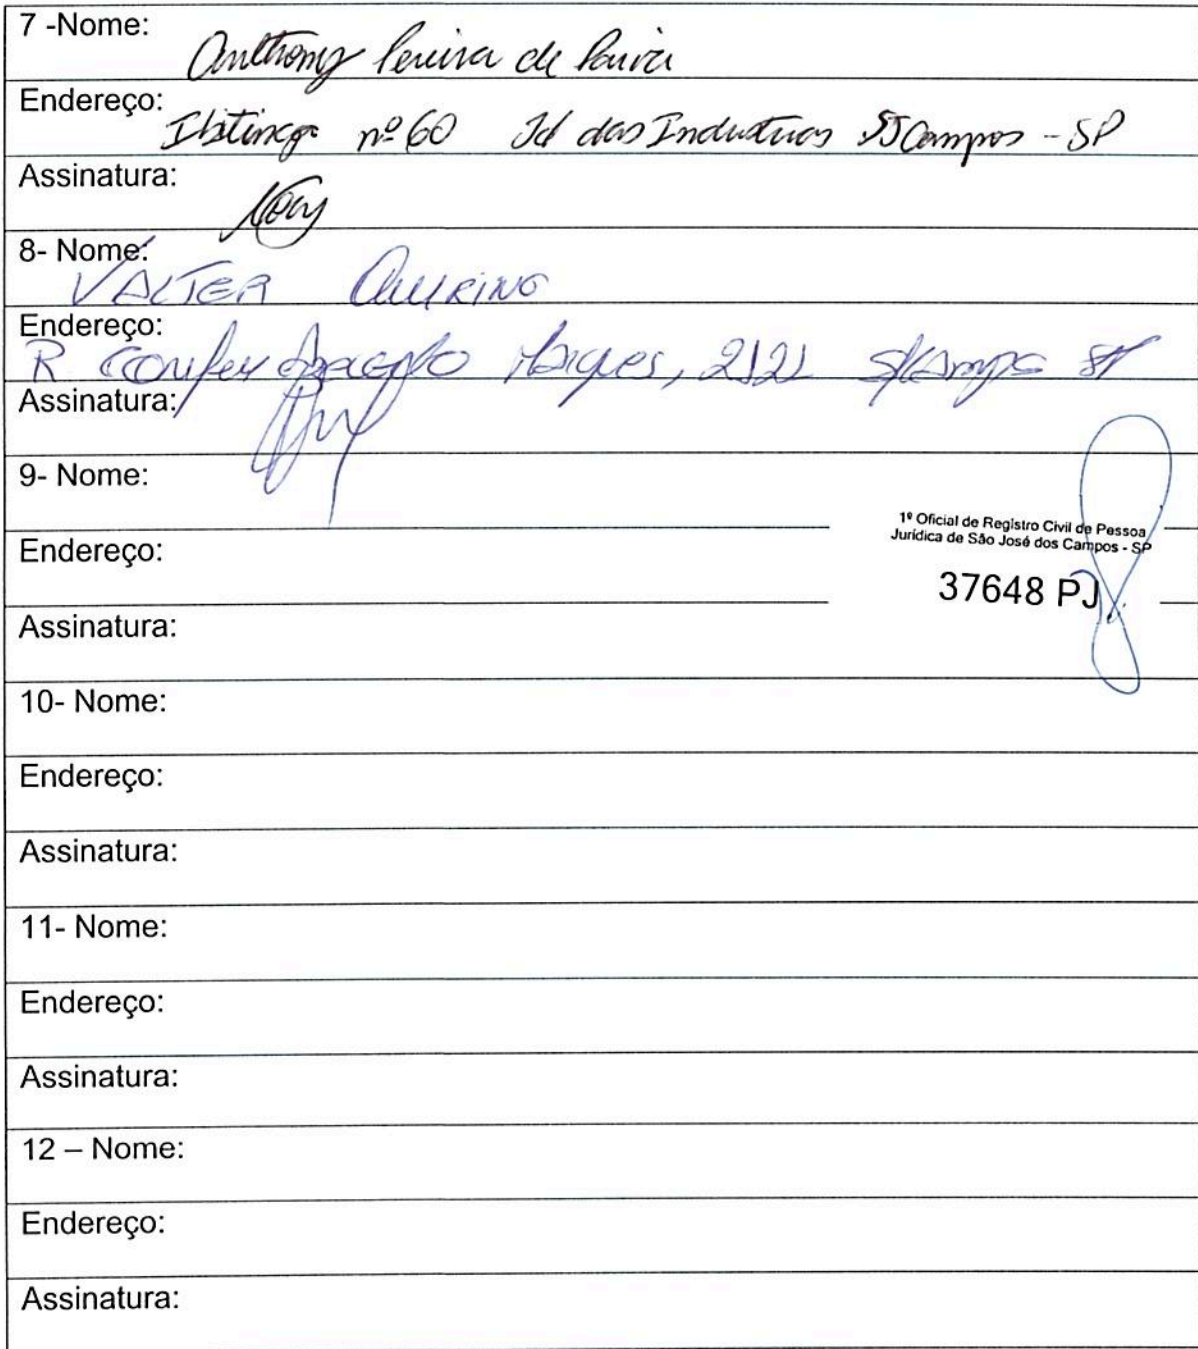 7 -Nome:
Anthony Pereira de Paiva
Endereço:
Ibitinga nº 60 Jd das Industrias SJCampos - SP
Assinatura:
8- Nome:
VALTER QUIRINO
Endereço:
R. 2121 SP
Assinatura:
9- Nome:
1º Oficial de Registro Civil de Pessoa
Jurídica de São José dos Campos - SP
Endereço:
37648 PJ
Assinatura:
10- Nome:
Endereço:
Assinatura:
11- Nome:
Endereço:
Assinatura:
12 – Nome:
Endereço:
Assinatura: